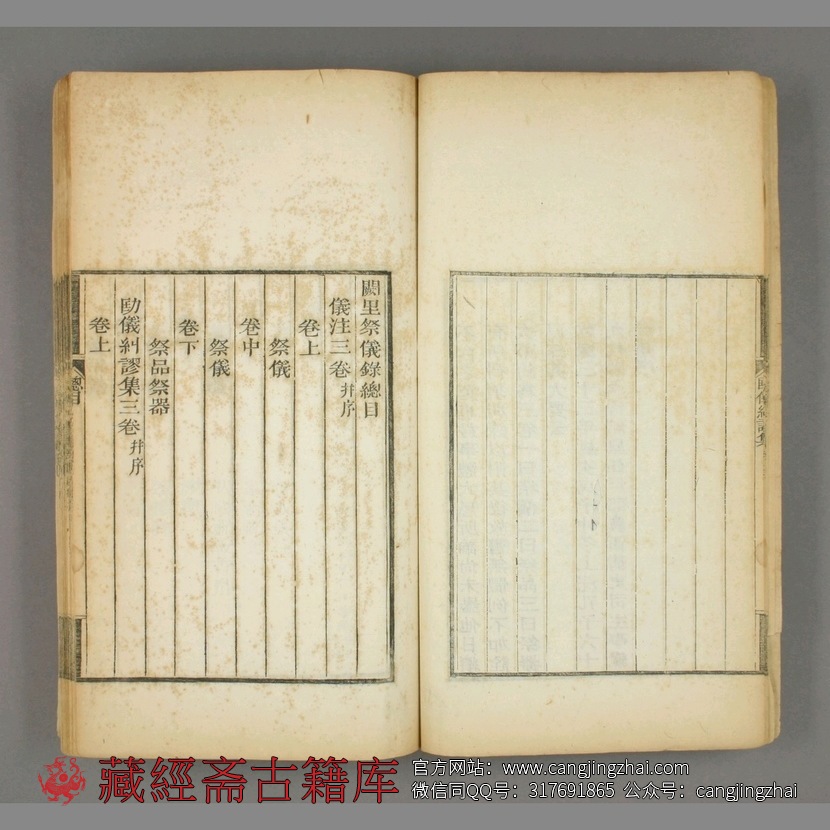 闕里祭儀錄總目
儀注三卷并序
卷上
祭儀
卷中
祭儀
卷下
祭品祭器
卷上
總目
藏經斋古籍库
官方网站：www.cangjingzhai.com
微信同QQ号：317691865 公众号：cangjingzhai